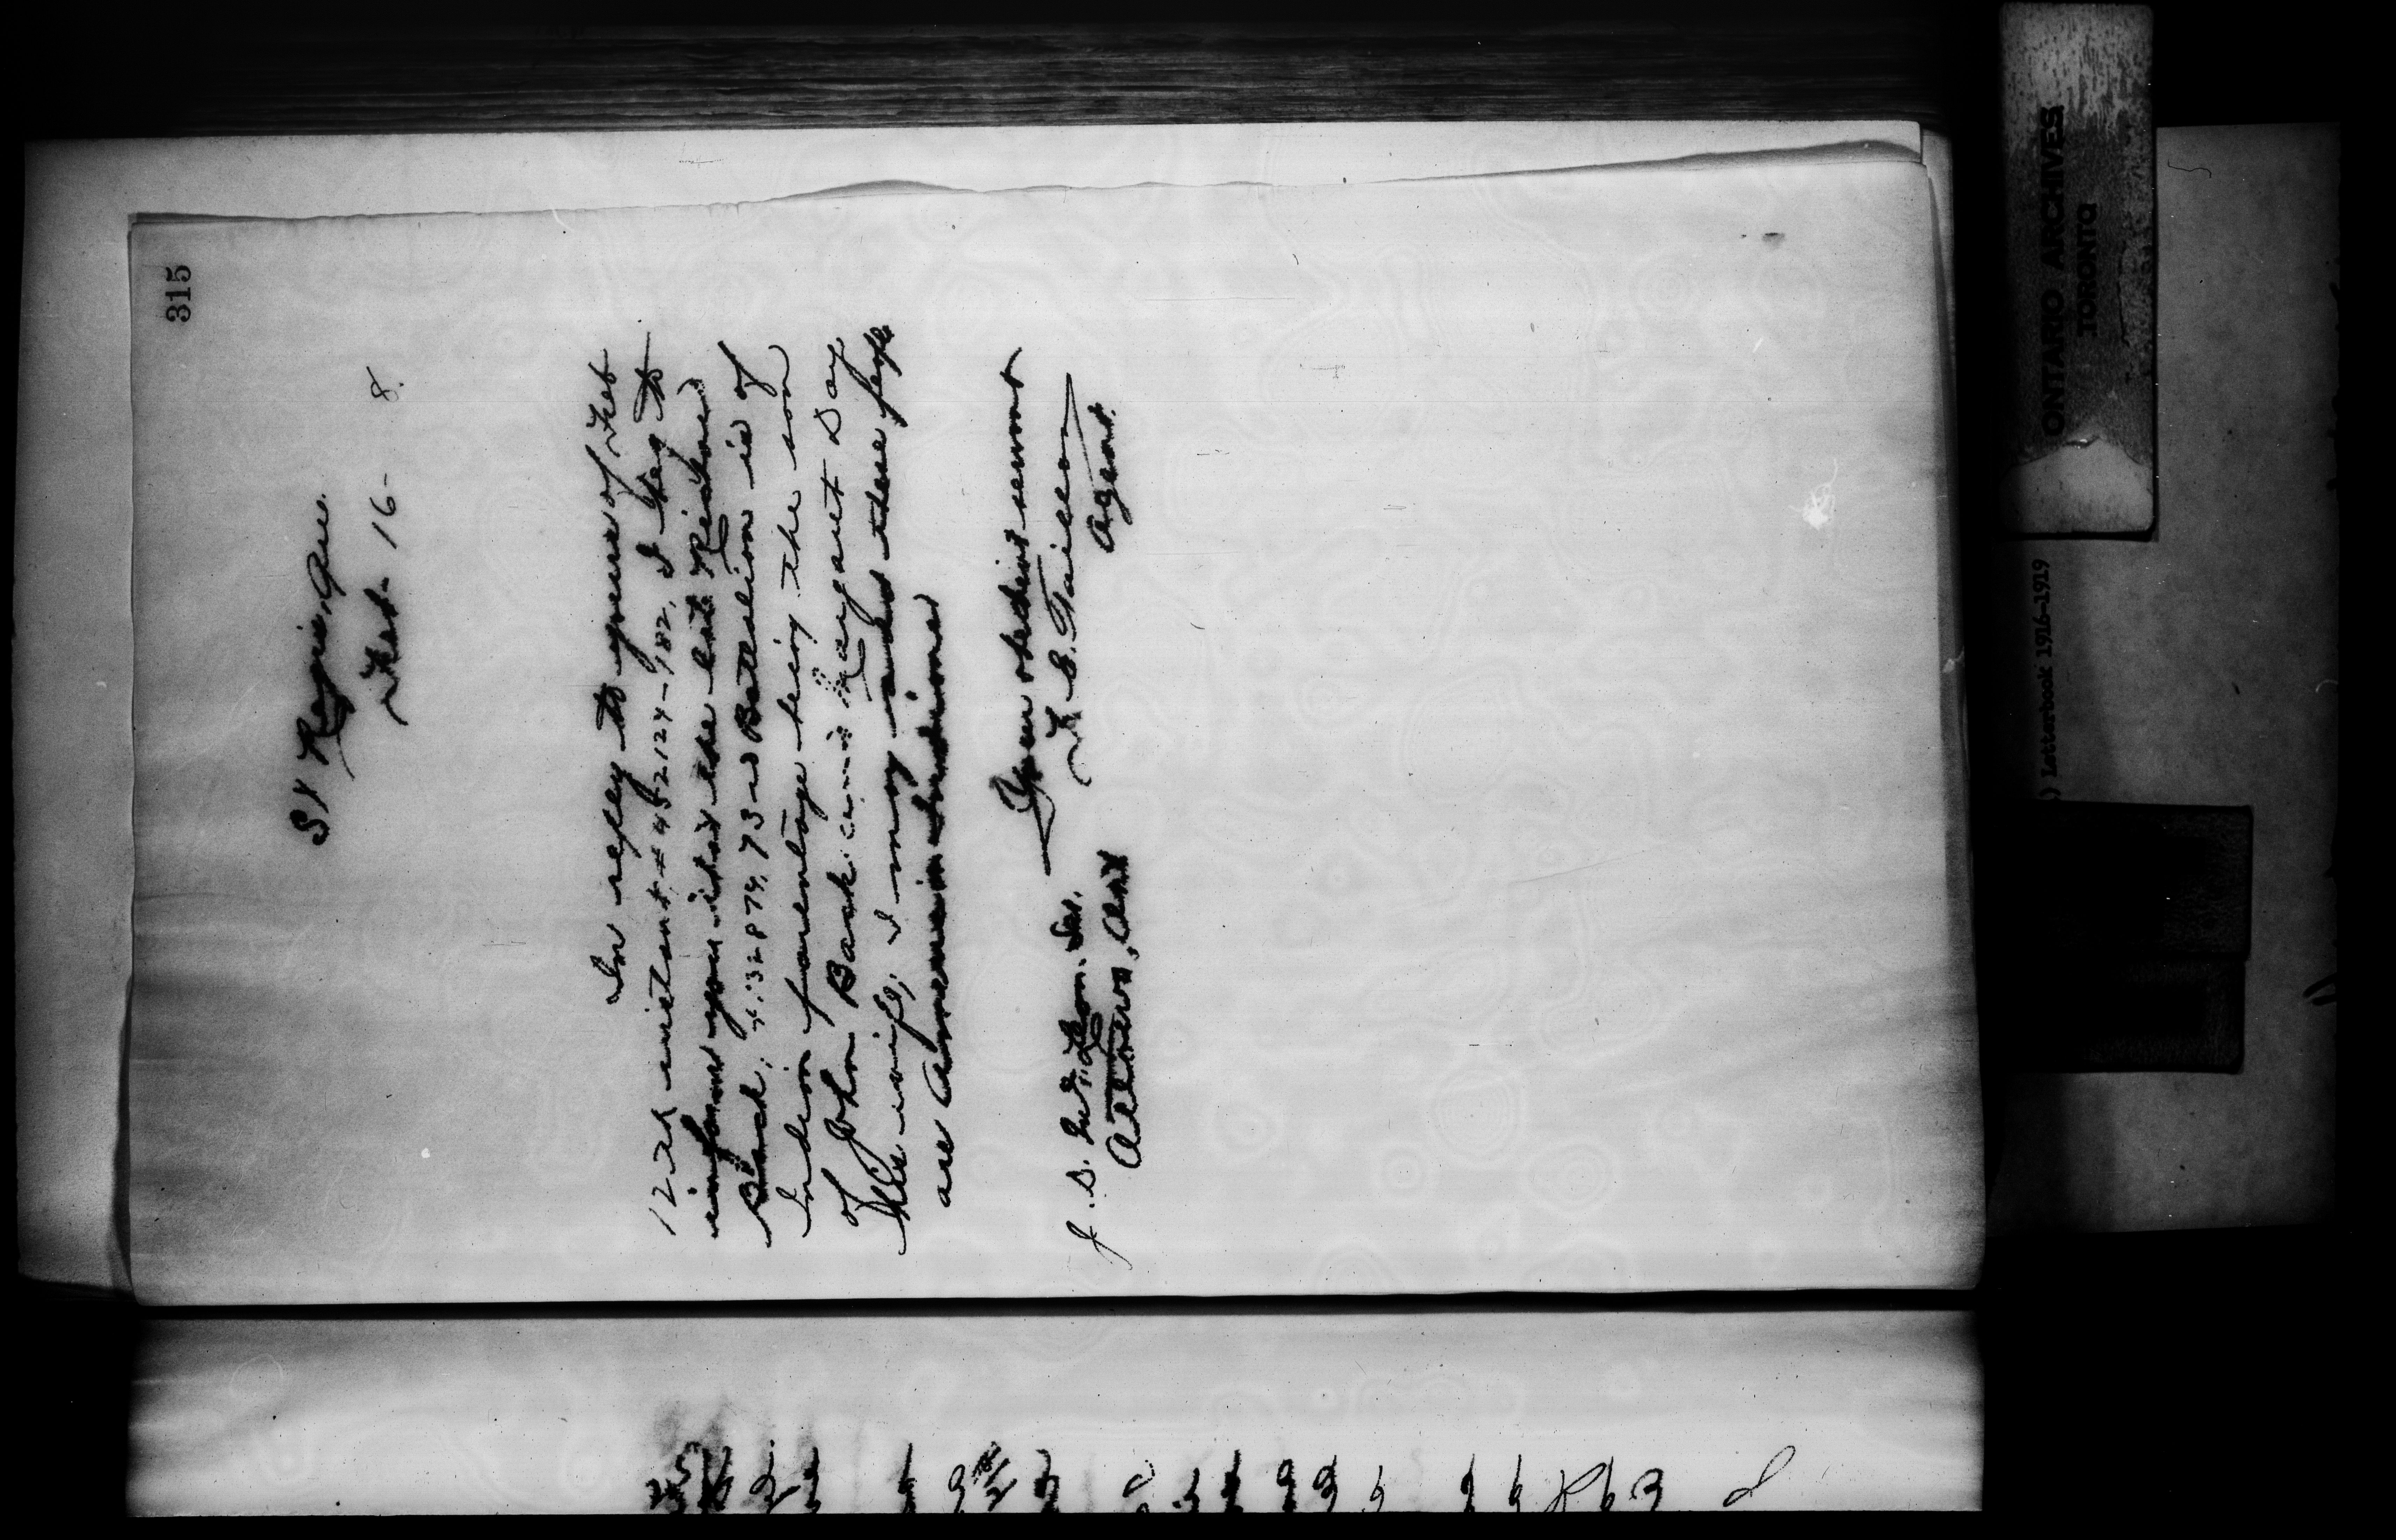 315
St Regis, Que.
Feb. 16- 8.
In reply to yours of Feb
12th instant # 452124-182, I beg to
inform you that the late Richard
Bask, 73rd Battalion is of
Indian parentage being the son
of John Bask and Margaret Day
his wife, I may add these people
are American Indians
Your obedient servant
F. E. Taillon
Agent.
J. D. McLean. Sec.
Ottawa, Ont
ONTARIO ARCHIVES
TORONTO
) Letterbook 1916-1919